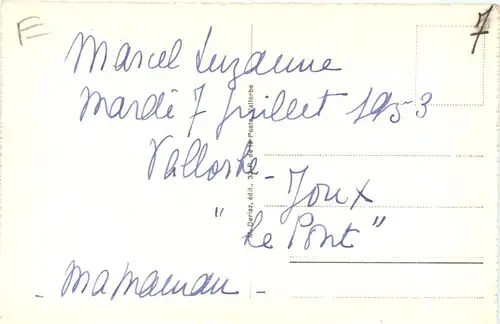 F
7
Marcel Suzanne
Mardi 7 Juillet 1953
Vallorbe - Joux
" Le Pont "
- Mamaman -
Deriaz, édit., de la Poste, Vallorbe